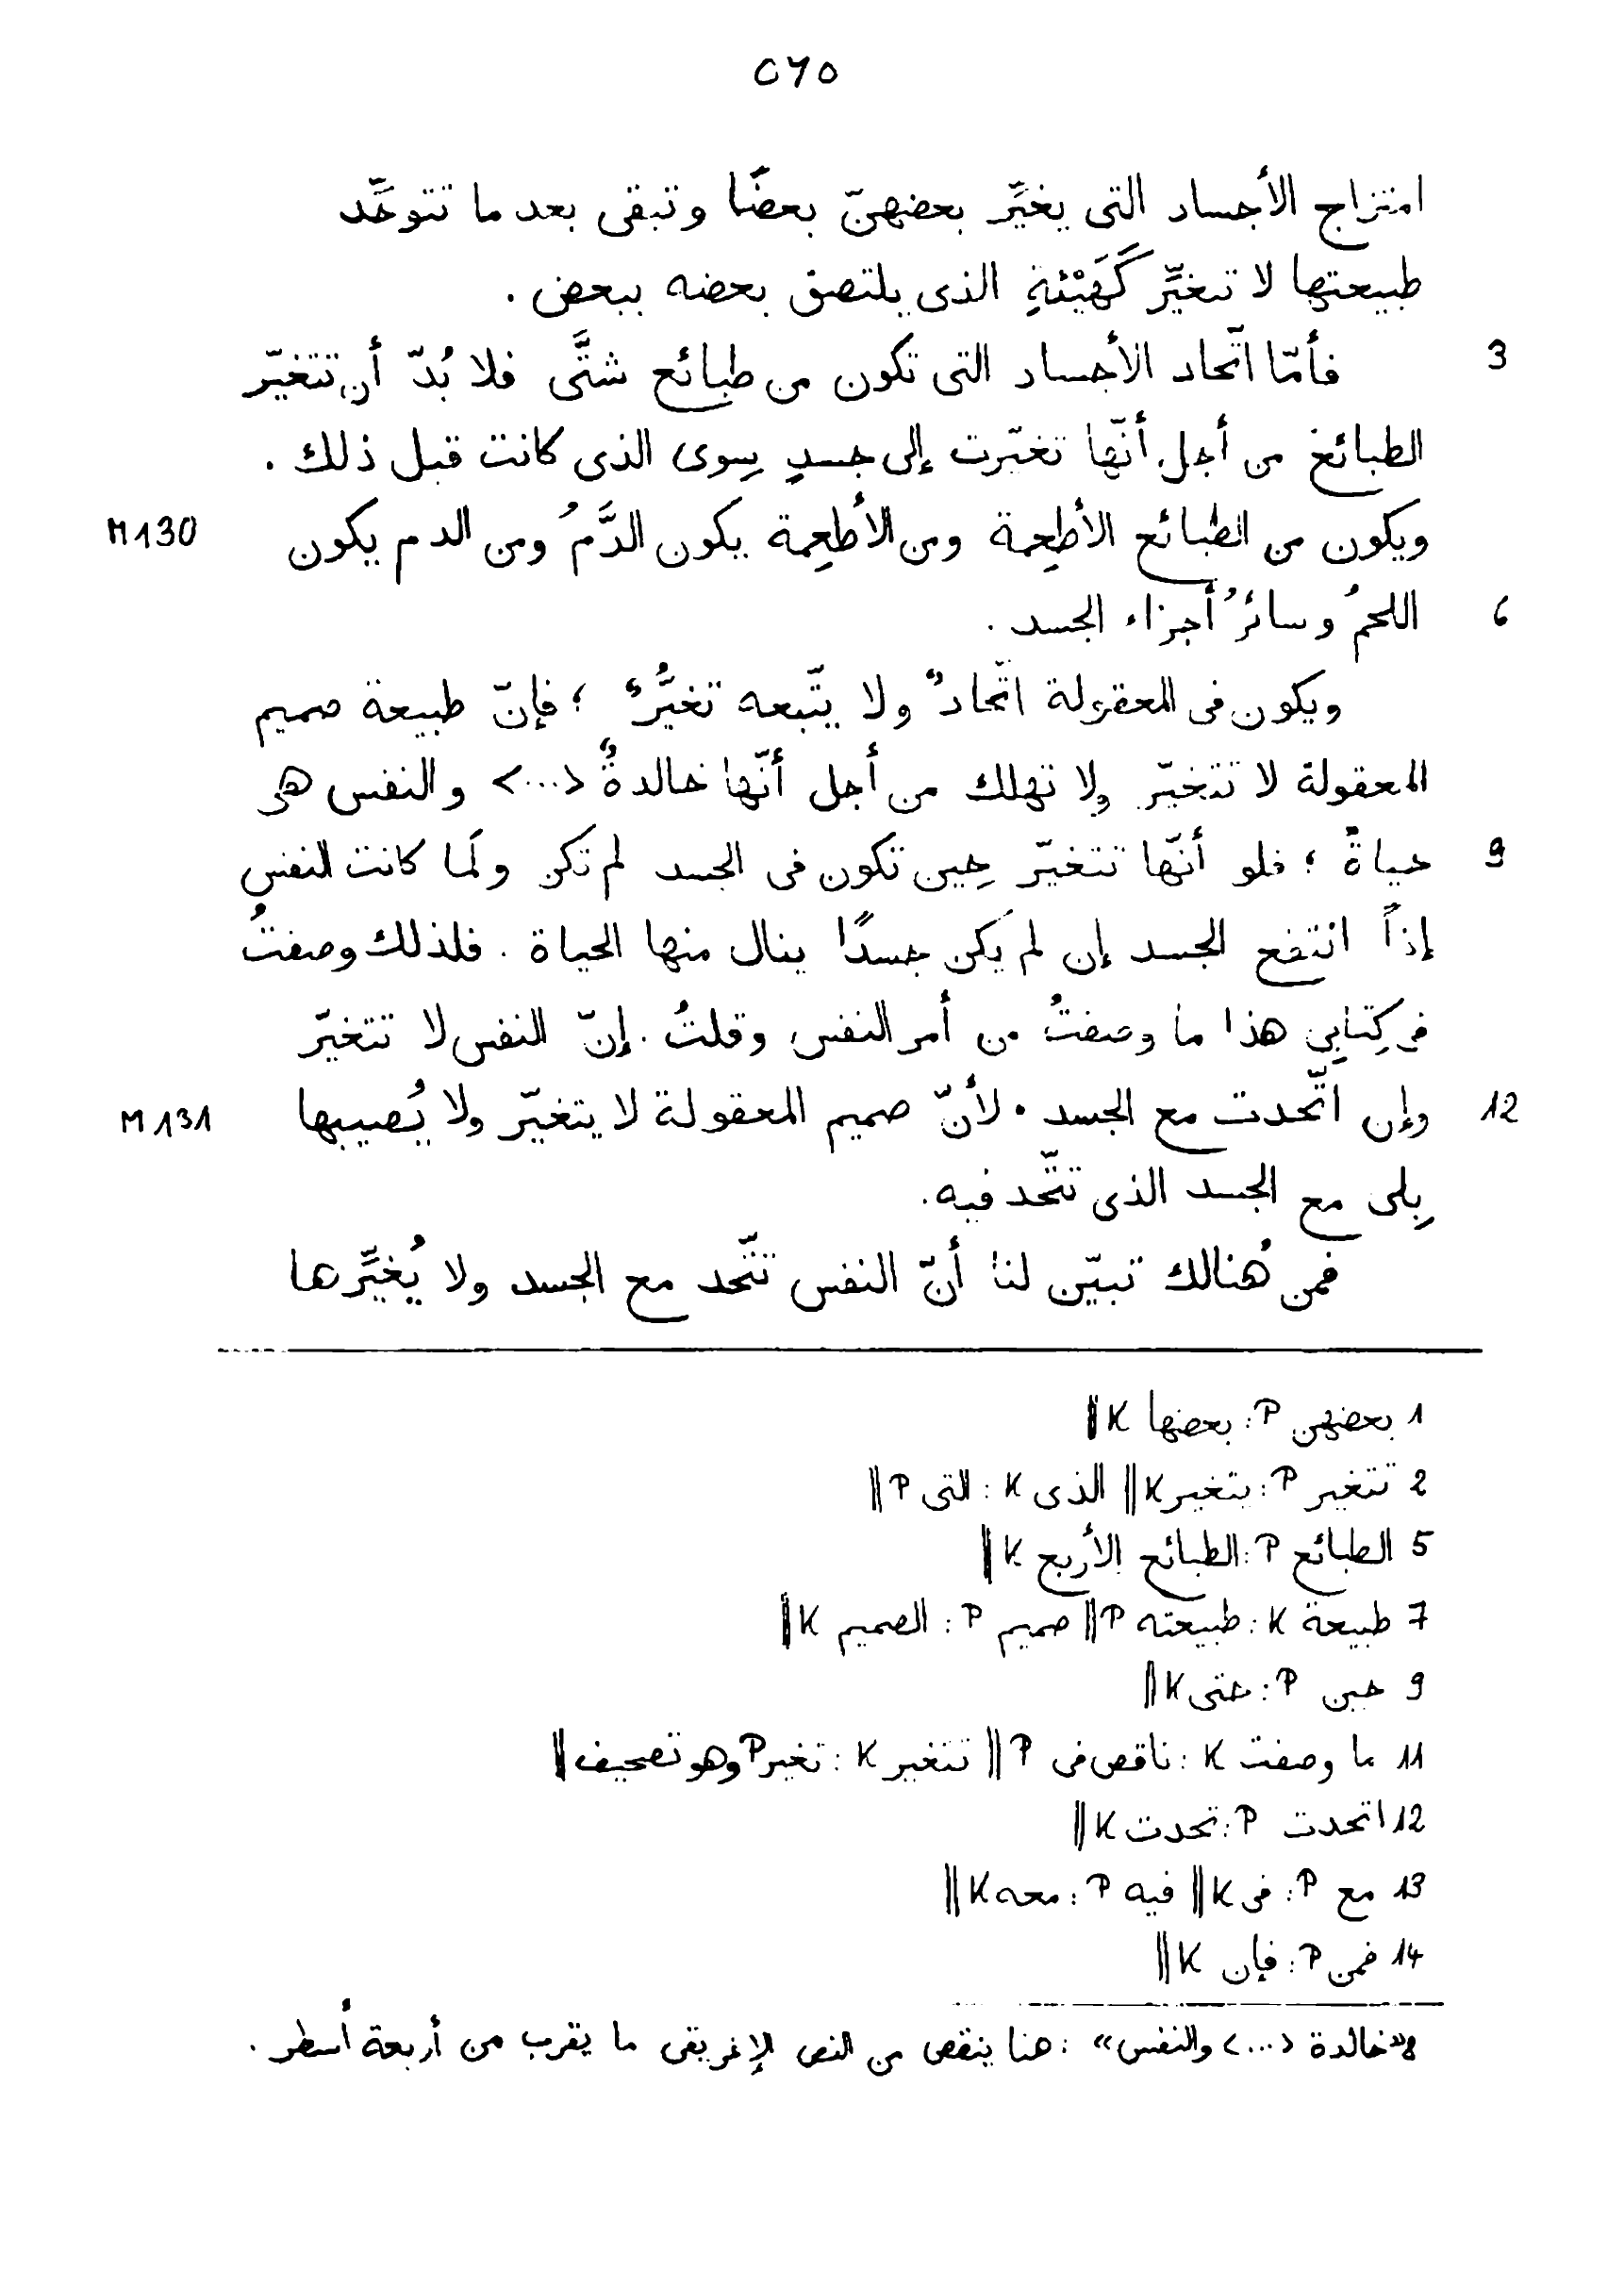 ٢٦٥
امتزاج الأجساد التى يغيِّر بعضهنّ بعضًا وتبقى بعد ما تتوحَّد
طبيعتها لا تتغيّر كَهَيْئةِ الذى يلتصق بعضه ببعض .
3 فأمّا اتّحاد الأجساد التى تكون من طبائع شتَّى فلا بُدّ أن تتغيّر
الطبائع من أجل أنّها تغيّرت إلى جسدٍ سِوى الذى كانت قبل ذلك .
ويكون من الطبائع الأطعِمة ومن الأطعِمة يكون الدَّمُ ومن الدم يكون M130
6 اللحمُ وسائرُ أجزاء الجسد .
ويكون فى المعقولة اتّحادٌ ولا يتّبعه تغيُّرٌ ؛ فإنّ طبيعة صميم
المعقولة لا تتغيّر ولا تهلك من أجل أنّها خالدةٌ <...> والنفس هى
9 حياةٌ ؛ فلو أنّها تتغيّر حِين تكون فى الجسد لم تكن ولَما كانت النفس
إذاً انتفع الجسد إن لم يكن جسدًا ينال منها الحياة . فلذلك وصفتُ
فى كِتابِى هذا ما وصفتُ من أمر النفس وقلتُ . إنّ النفس لا تتغيّر
12 وإن اتّحدت مع الجسد . لأنّ صميم المعقولة لا يتغيّر ولا يُصيبها M131
بِلى مع الجسد الذى تتّحد فيه .
فمن هُنالك تبيّن لنا أنّ النفس تتّحد مع الجسد ولا يُغيِّرها
1 بعضهن P : بعضها K ‖
2 تتغير P : يتغير K ‖ الذى K : التى P ‖
5 الطبائع P : الطبائع الأربع K ‖
7 طبيعة K : طبيعته P ‖ صميم P : الصميم K ‖
9 حين P : حتى K ‖
11 ما وصفت K : ناقص فى P ‖ تتغير K : تغير P وهو تصحيف ‖
12 اتحدت P : تحدت K ‖
13 مع P : فى K ‖ فيه P : معه K ‖
14 فمن P : فإن K ‖
8 «خالدة <...> والنفس» : هنا ينقص من النص الإغريقى ما يقرب من أربعة أسطر .